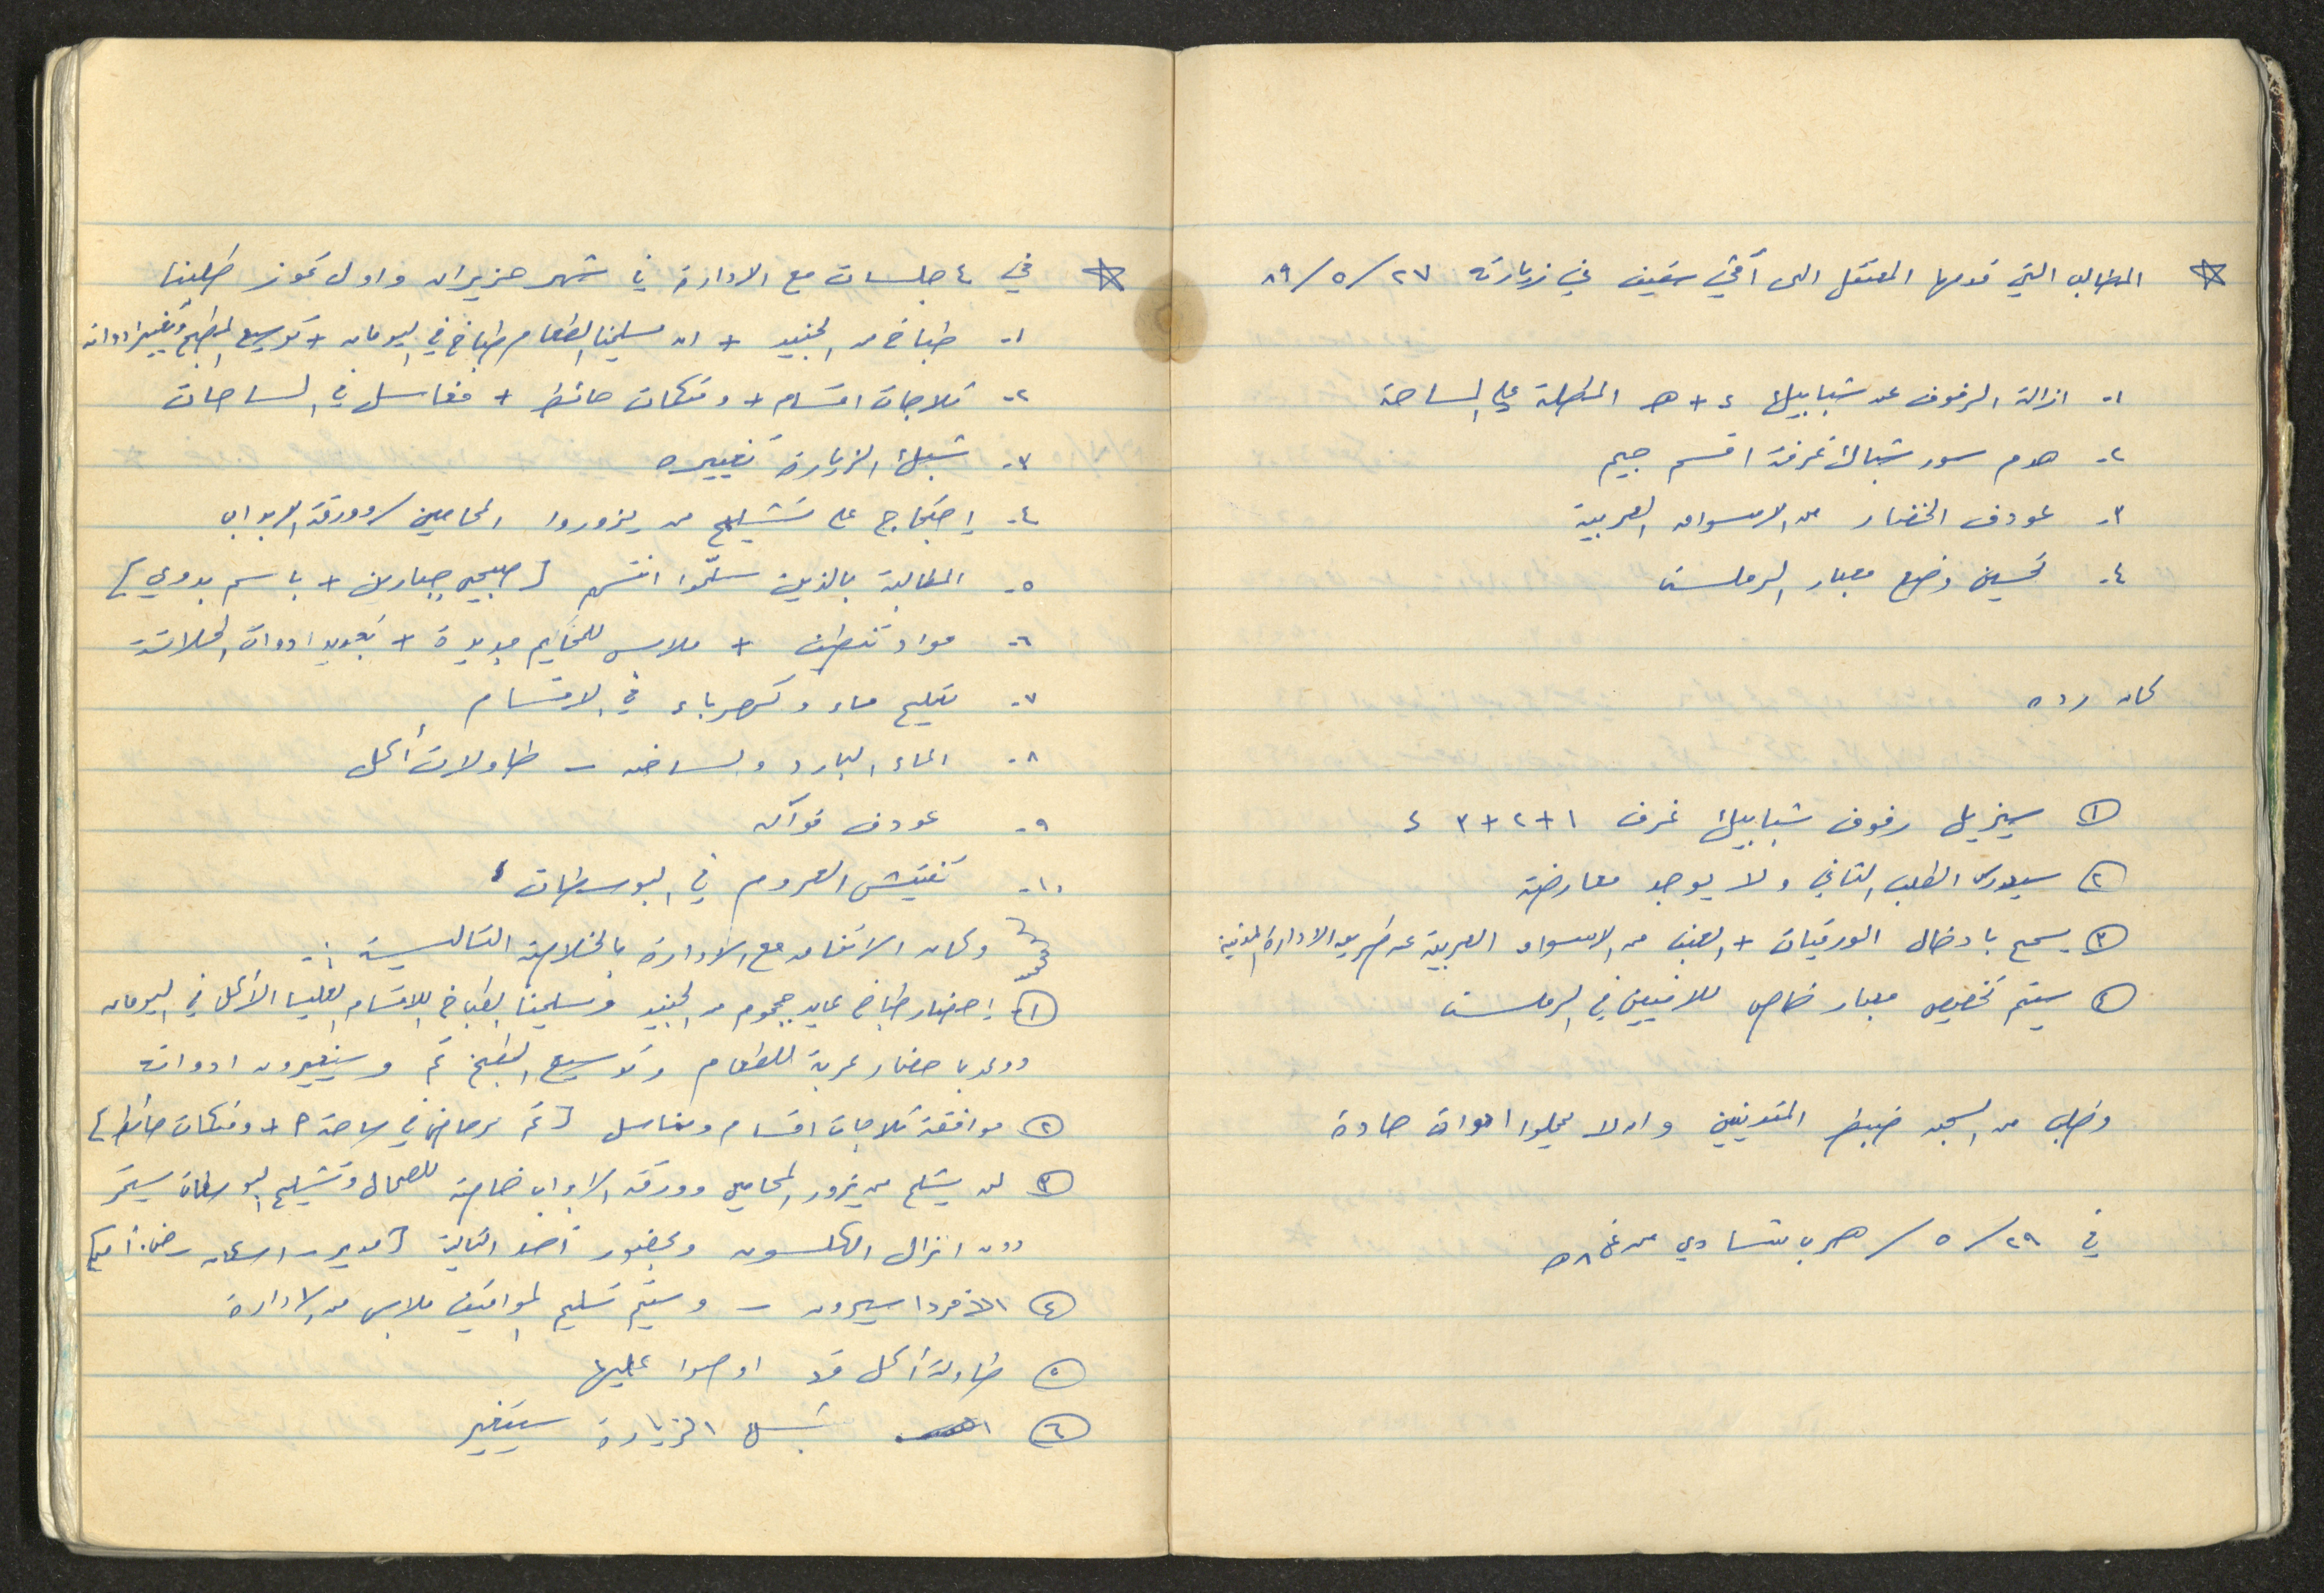 ☆ المطالب التي قدمها المعتقل الى آفي سفيف في زيارته ٢٧/٥/٨٩
١- ازالة الرفوف عن شبابيك ء + هـ المطلة على الساحة
٢- هدم سور شباك غرفة ١ قسم جيم
٣- عودة الخضار من الاسواق العربية
٤- تحسين وضع معبار الرملة
كان رده
① سيزيل رفوف شبابيك غرف ١+٢+٣ ء
② سيدرس الطلب الثاني ولا يوجد معارضة
③ يسمح بادخال الورقيات + العنب من الاسواق العربية عن طريق الادارة المدنية
④ سيتم تخصيص معبار خاص للامنيين في الرملة
وطلب من السجن ضبط المتدينين وان لا يحملوا ادوات حادة
في ٢٩/٥/ هرب تساوي من غ ٨ هـ
☆ في ٤ جلسات مع الادارة في شهر حزيران واول تموز طلبنا
١- طباخ من الجنيد + ان يسلمنا الطعام طباخ في اليومان + توسيع المطبخ وتغيير ادواته
٢- ثلاجات اقسام + ومتكات حائط + مغاسل في الساحات
٣- شبك الزيارة تغييره
٤- إحتجاج على تشليح من يزوروا المحامين / وورقة الابواب
٥- المطالبة بالذين سلّموا انفسهم [صبحي جبارين + باسم بدوي]
٦- مواد تنظيف + ملابس للمخايم جديدة + تجديد ادوات الحلاقة
٧- تصليح ماء وكهرباء في الاقسام
٨- الماء البارد والساخن - طاولات أكل
٩- عودة فواكه
١٠- تفتيش العروم في البوسطات
وكان الاتفاق مع الادارة بالخلاصة التالية :-
① إحضار طباخ عايد جموم من الجنيد وسليمنا الطباخ للاقسام العليا الأكل في اليومان
ووعد باحضار عربة للطعام وتوسيع المطبخ تم وسيغيرون ادواته
② موافقة ثلاجات اقسام ومغاسل [تم مرحاض في ساحة ح + ومتكات حائط]
③ لن يشلح من يزور المحامي وورقة الابواب خاصة للعمال وتشليح البوسطات سيتم
دون انزال الكلسون وبحضور أحد التالية [مدير - اركان - ض. أمن]
④ الافردا سيرون - وسيتم تسليم المواقيف ملابس من الادارة
⑤ طاولة أكل قد اوصوا عليها
⑥ شبك الزيارة سيتغير